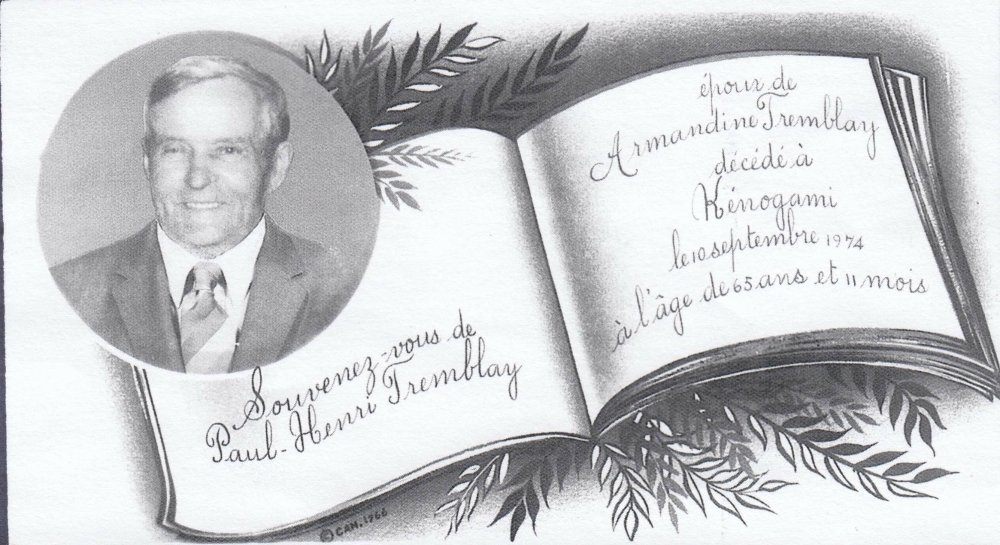 Souvenez-vous de
Paul-Henri Tremblay
époux de
Armandine Tremblay
décédé à
Kénogami
le 10 septembre 1974
à l'âge de 65 ans et 11 mois
© CAN. 1966